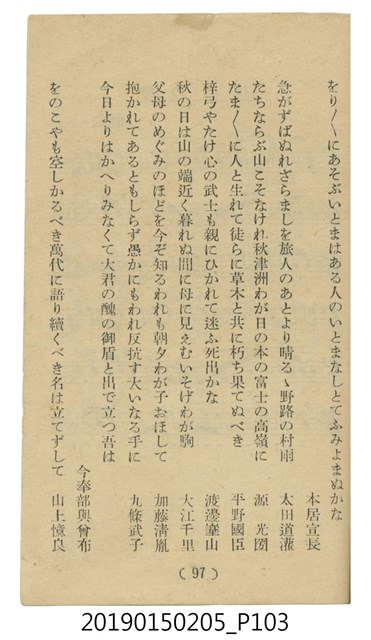 をり〱にあそぶいとまはある人のいとまなしとてふみよまぬかな
本居宣長
急がずばぬれざらましを旅人のあとより晴るゝ野路の村雨
太田道灌
たちならぶ山こそなけれ秋津洲わが日の本の富士の高嶺に
源　光圀
たま〱に人と生れて徒らに草木と共に朽ち果てぬべき
平野國臣
梓弓やたけ心の武士も親にひかれて迷ふ死出かな
渡邊崋山
秋の日は山の端近く暮れぬ間に母に見えむいそげわが駒
大江千里
父母のめぐみのほどを今ぞ知るわれも朝夕わが子おほして
加藤淸胤
抱かれてあるともしらず愚かにもわれ反抗す大いなる手に
九條武子
今日よりはかへりみなくて大君の醜の御盾と出で立つ吾は
今奉部與曾布
をのこやも空しかるべき萬代に語り續くべき名は立てずして
山上憶良
（97）
20190150205_P103